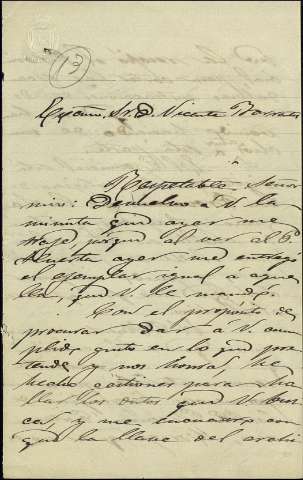 13
Excmo. Sr. D. Vicente Barrantes
Respetable Señor
mio: Devuelvo á V. la
minuta que ayer me
traje, porque al ver al Sr.
ayer me entregó
el ejemplar igual á aque-
lla, que V. le mandó.
Con el propósito de
procurar dar á V. cum-
plido gusto en lo que pre-
tende y nos honra, he
hecho gestiones para ha-
llar los datos que V. bus-
ca, y me encuentro con
que la llave del archi-